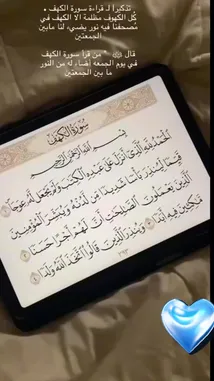 تذكيراً لـ قراءة سورة الكهف .
كُل الكهوف مظلمة الا الكهف في
مصحفنا فيه نور يضيء لنا مابين
الجمعتين
قال ﷺ " من قرأ سورة الكهف
في يوم الجمعه أضاء له من النور
ما بين الجمعتين
سُورَةُ الكَهْفِ
بِسْمِ اللَّهِ الرَّحْمَٰنِ الرَّحِيمِ
الْحَمْدُ لِلَّهِ الَّذِي أَنزَلَ عَلَىٰ عَبْدِهِ الْكِتَٰبَ وَلَمْ يَجْعَل لَّهُ عِوَجًا ١
قَيِّمًا لِّيُنذِرَ بَأْسًا شَدِيدًا مِّن لَّدُنْهُ وَيُبَشِّرَ الْمُؤْمِنِينَ
الَّذِينَ يَعْمَلُونَ الصَّٰلِحَٰتِ أَنَّ لَهُمْ أَجْرًا حَسَنًا ٢
مَّٰكِثِينَ فِيهِ أَبَدًا ٣ وَيُنذِرَ الَّذِينَ قَالُوا اتَّخَذَ اللَّهُ وَلَدًا ٤
٢٩٣